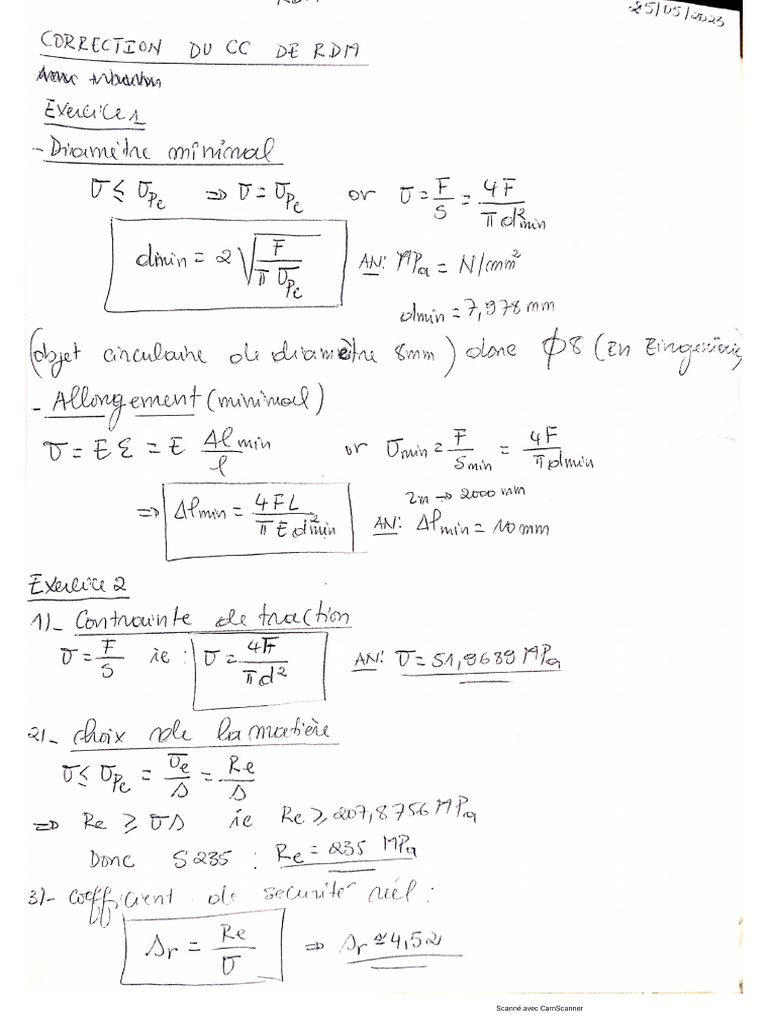 25/05/2023
CORRECTION DU CC DE RDM
Exercice 1
- Diamètre minimal
σ ≤ σPe ⇒ σ = σPe or σ = F/S = 4F/πd²min
dmin = 2√(F/πσPe) AN: MPa = N/mm²
dmin = 7,978 mm
(objet circulaire de diamètre 8mm) donc ϕ8 (En Eingenierie)
- Allongement (minimal)
σ = Eε = E Δlmin/l or σmin = F/Smin = 4F/πdmin
2m → 2000 mm
⇒ Δlmin = 4FL/πEd²min AN: Δlmin = 10 mm
Exercice 2
1)- Contrainte de traction
σ = F/S ie : σ = 4F/πd² AN: σ = 51,9689 MPa
2)- choix de la matière
σ ≤ σPe = σe/s = Re/s
⇒ Re ≥ σs ie Re ≥ 207,8756 MPa
Donc S235 : Re = 235 MPa
3)- Coefficient de securité réel :
sr = Re/σ ⇒ sr ≃ 4,52
Scanné avec CamScanner